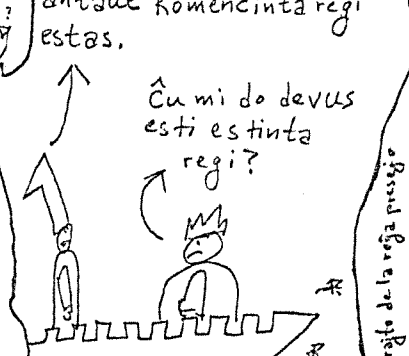 antaŭe komencinta regi
estas.
Ĉu mi do devus
esti estinta
regi?
rajto de la reĝa presejo